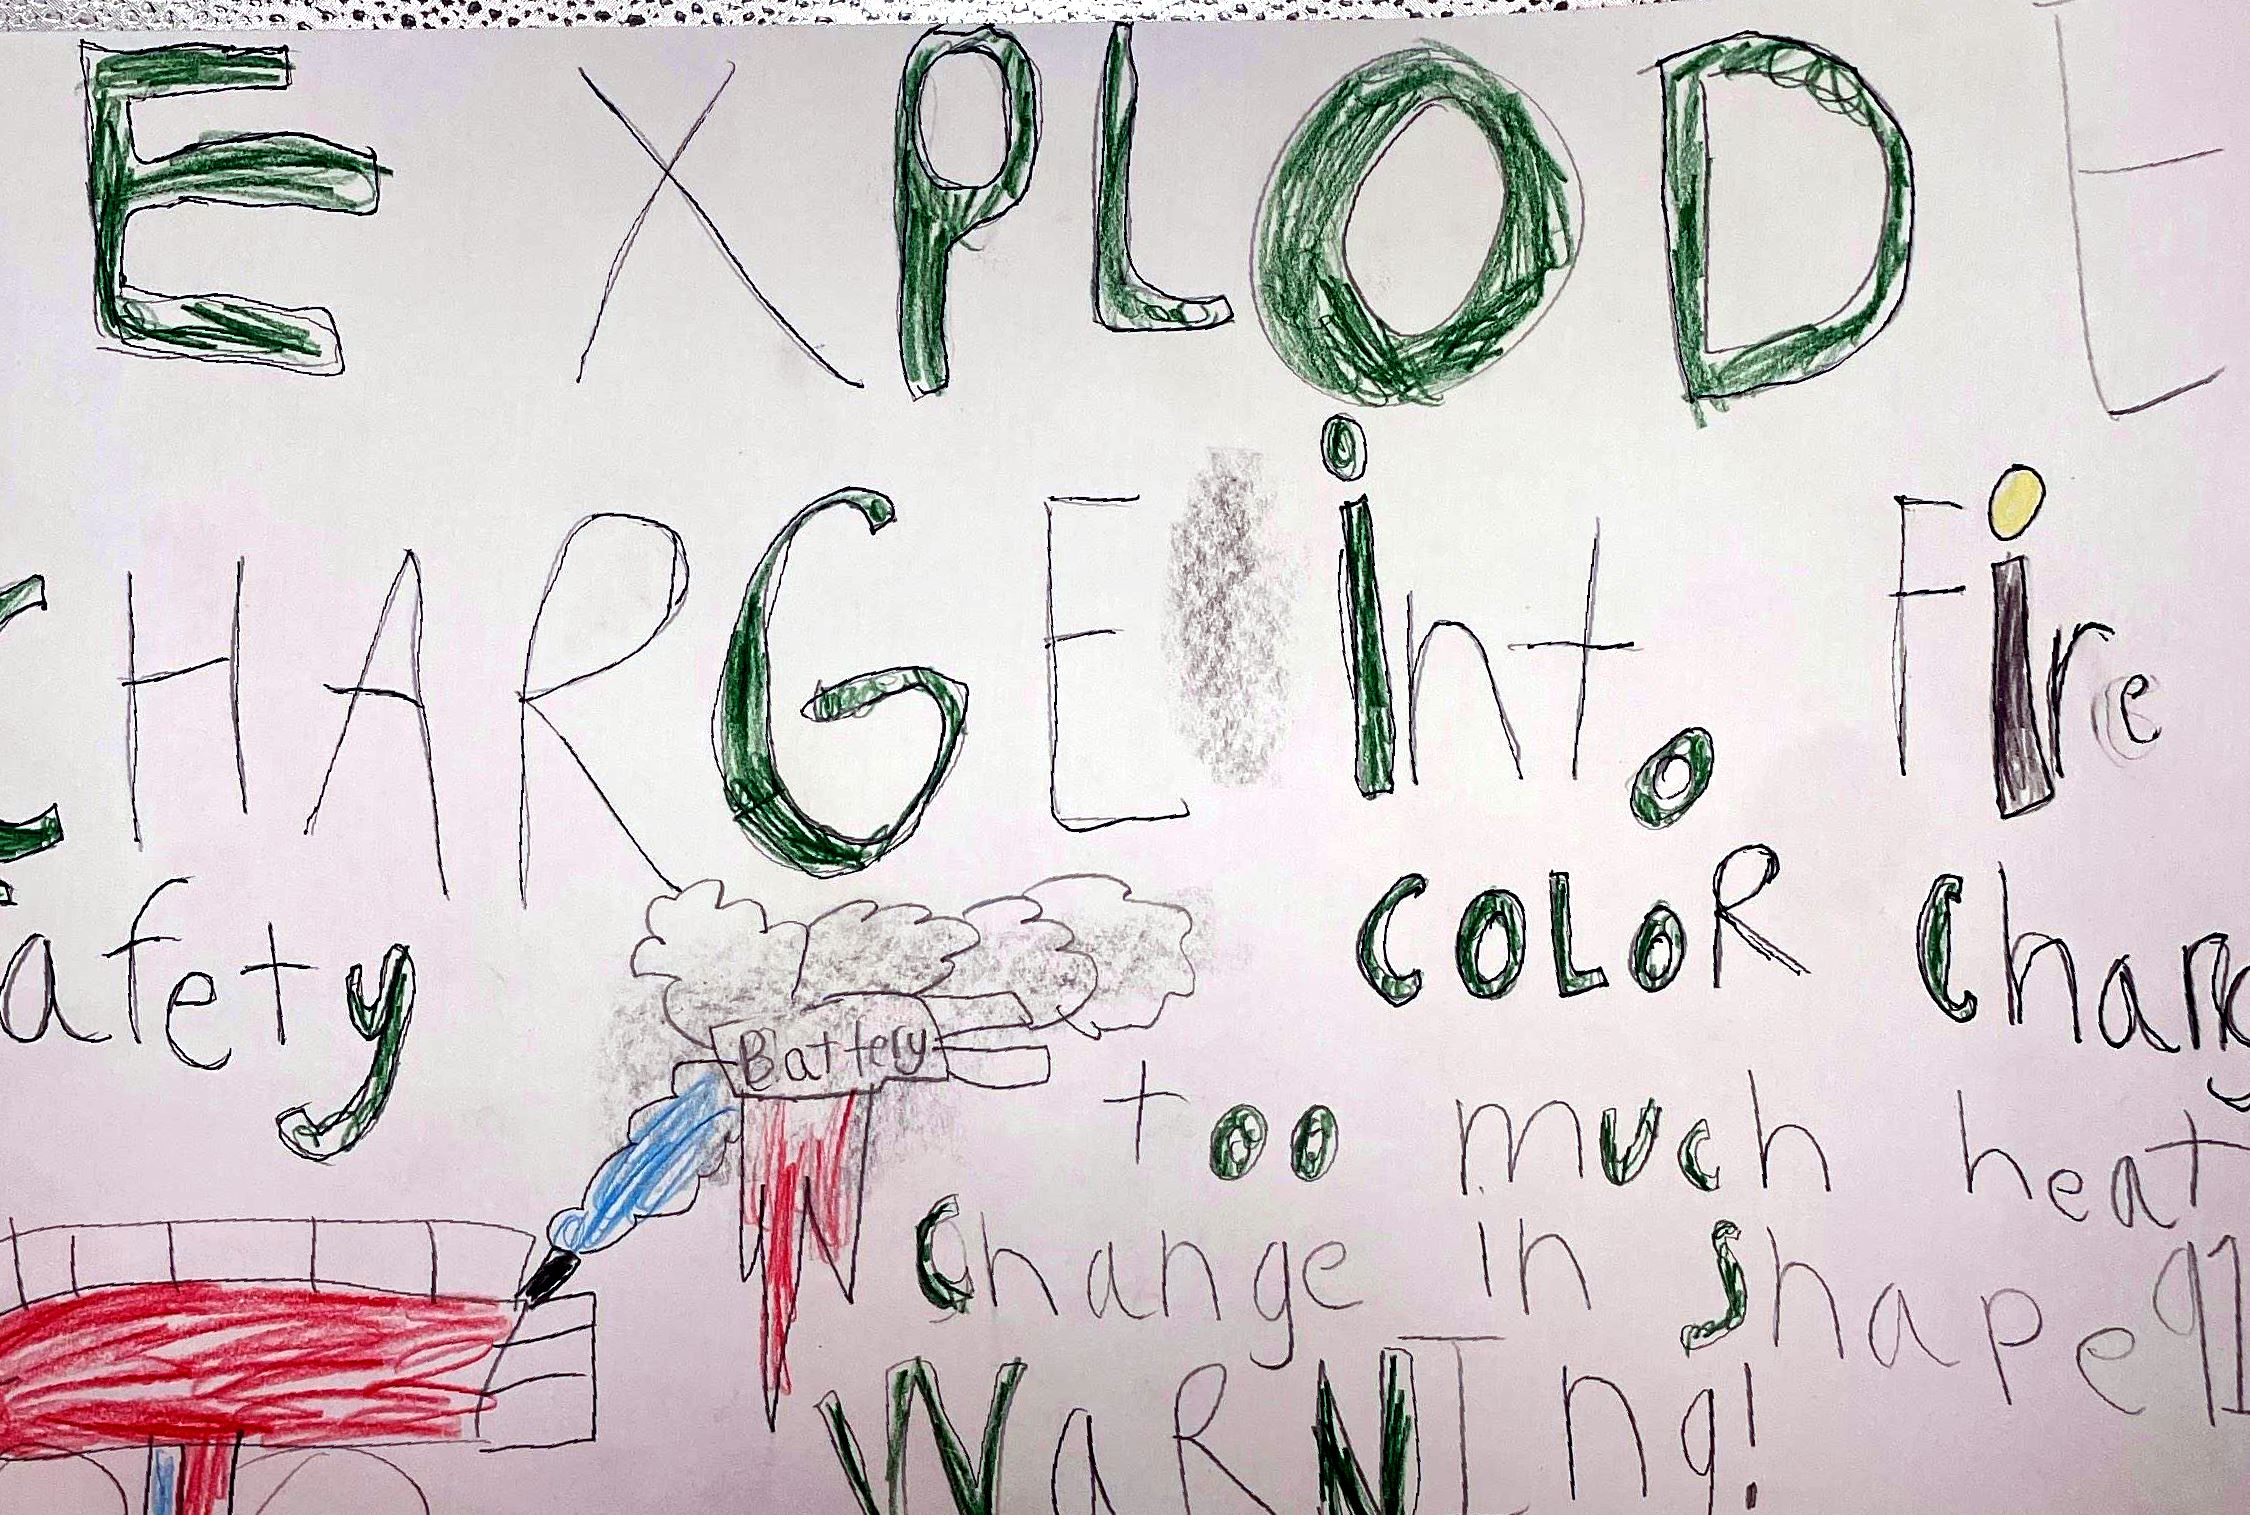 EXPLODE
CHARGE into Fire
safety COLOR Change
Battery
too much heat
Change in shape 911
WaRNIng!